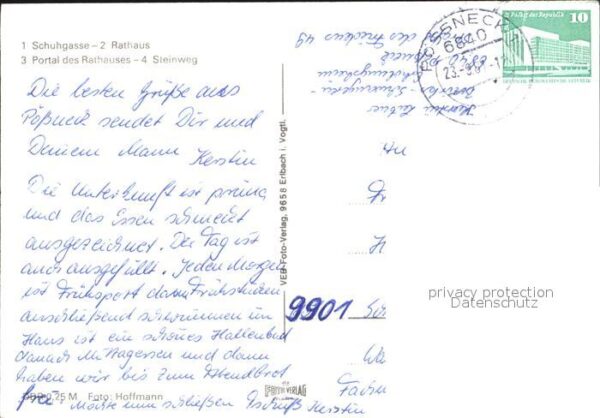 1 Schuhgasse – 2 Rathaus
3 Portal des Rathauses – 4 Steinweg
Die besten Grüße aus
Pößneck sendet Dir und
Deinem Mann Kerstin
Die Unterkunft ist prima
und das Essen schmeckt
ausgezeichnet. Der Tag ist
auch ausgefüllt. Jeden Morgen
ist Frühsport dann Frühstücken
anschließend schwimmen im
Haus ist ein schönes Hallenbad
danach Mittagessen und dann
haben wir bis zum Abendbrot
frei. Möchte nun schließen Kerstin
0,25 M Foto: Hoffmann
VEB Foto-Verlag, 9656 Erlbach i. Vogtl.
FOTO VERLAG
PÖSSNECK 1
6840
Palast der Republik 10
des Friedens 49
6840
An
Fr
9901
privacy protection
Datenschutz